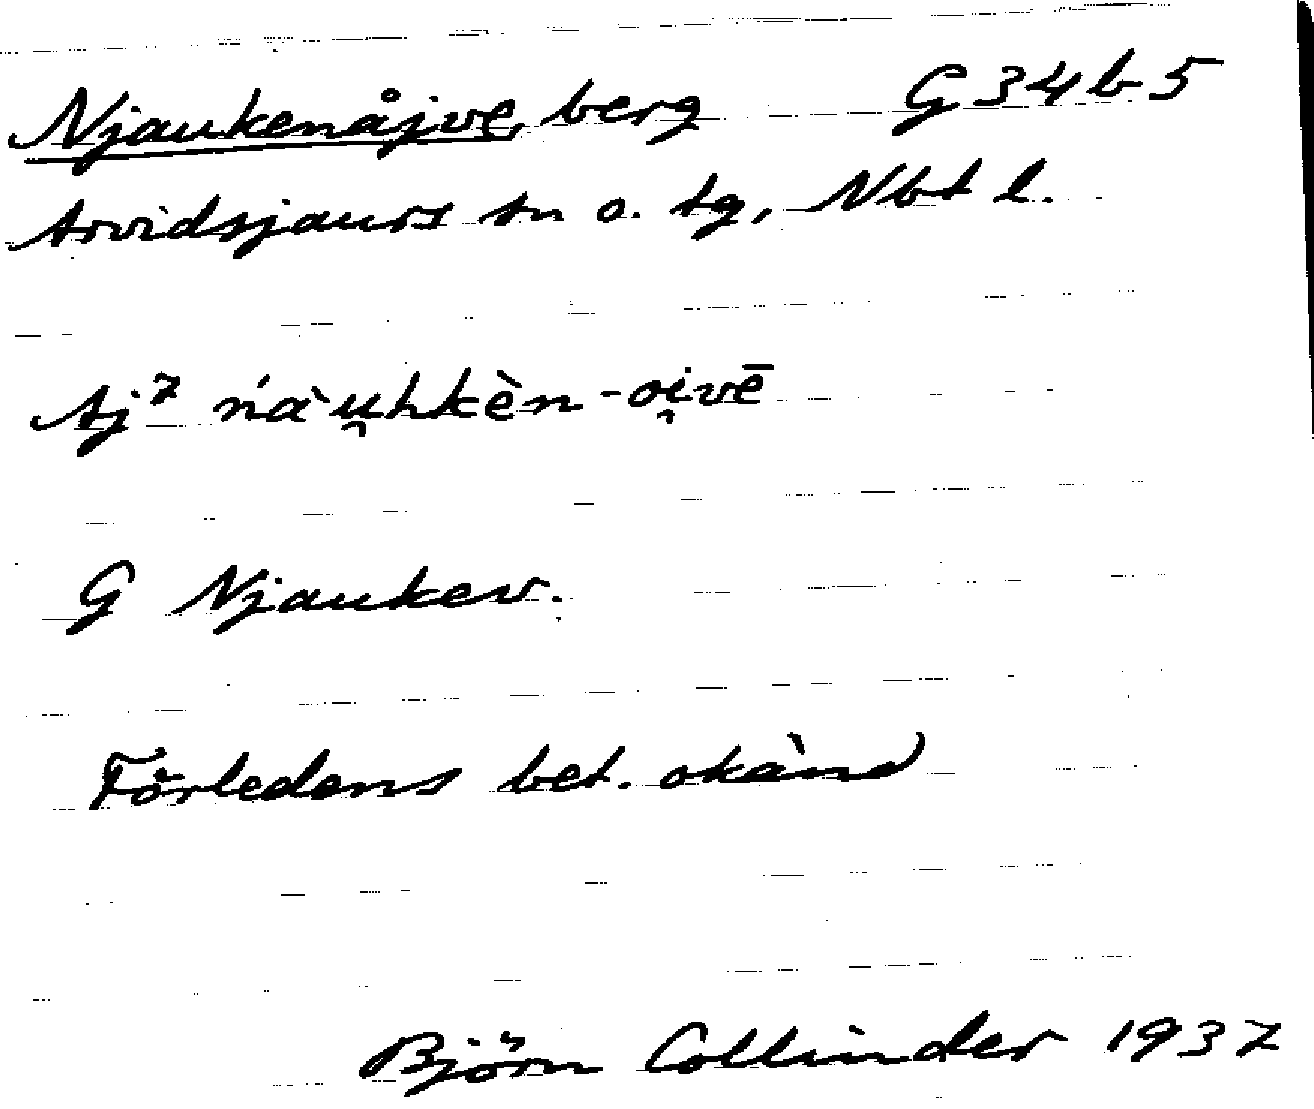 Njaukenåjve, berg G 34 b 5
Arvidsjaurs sn o. tg, Nbt l.
Aj⁷ ń̀au̯hkèn-oi̯vē
G Njaukev.
Förledens bet. okänd
Björn Collinder 1937